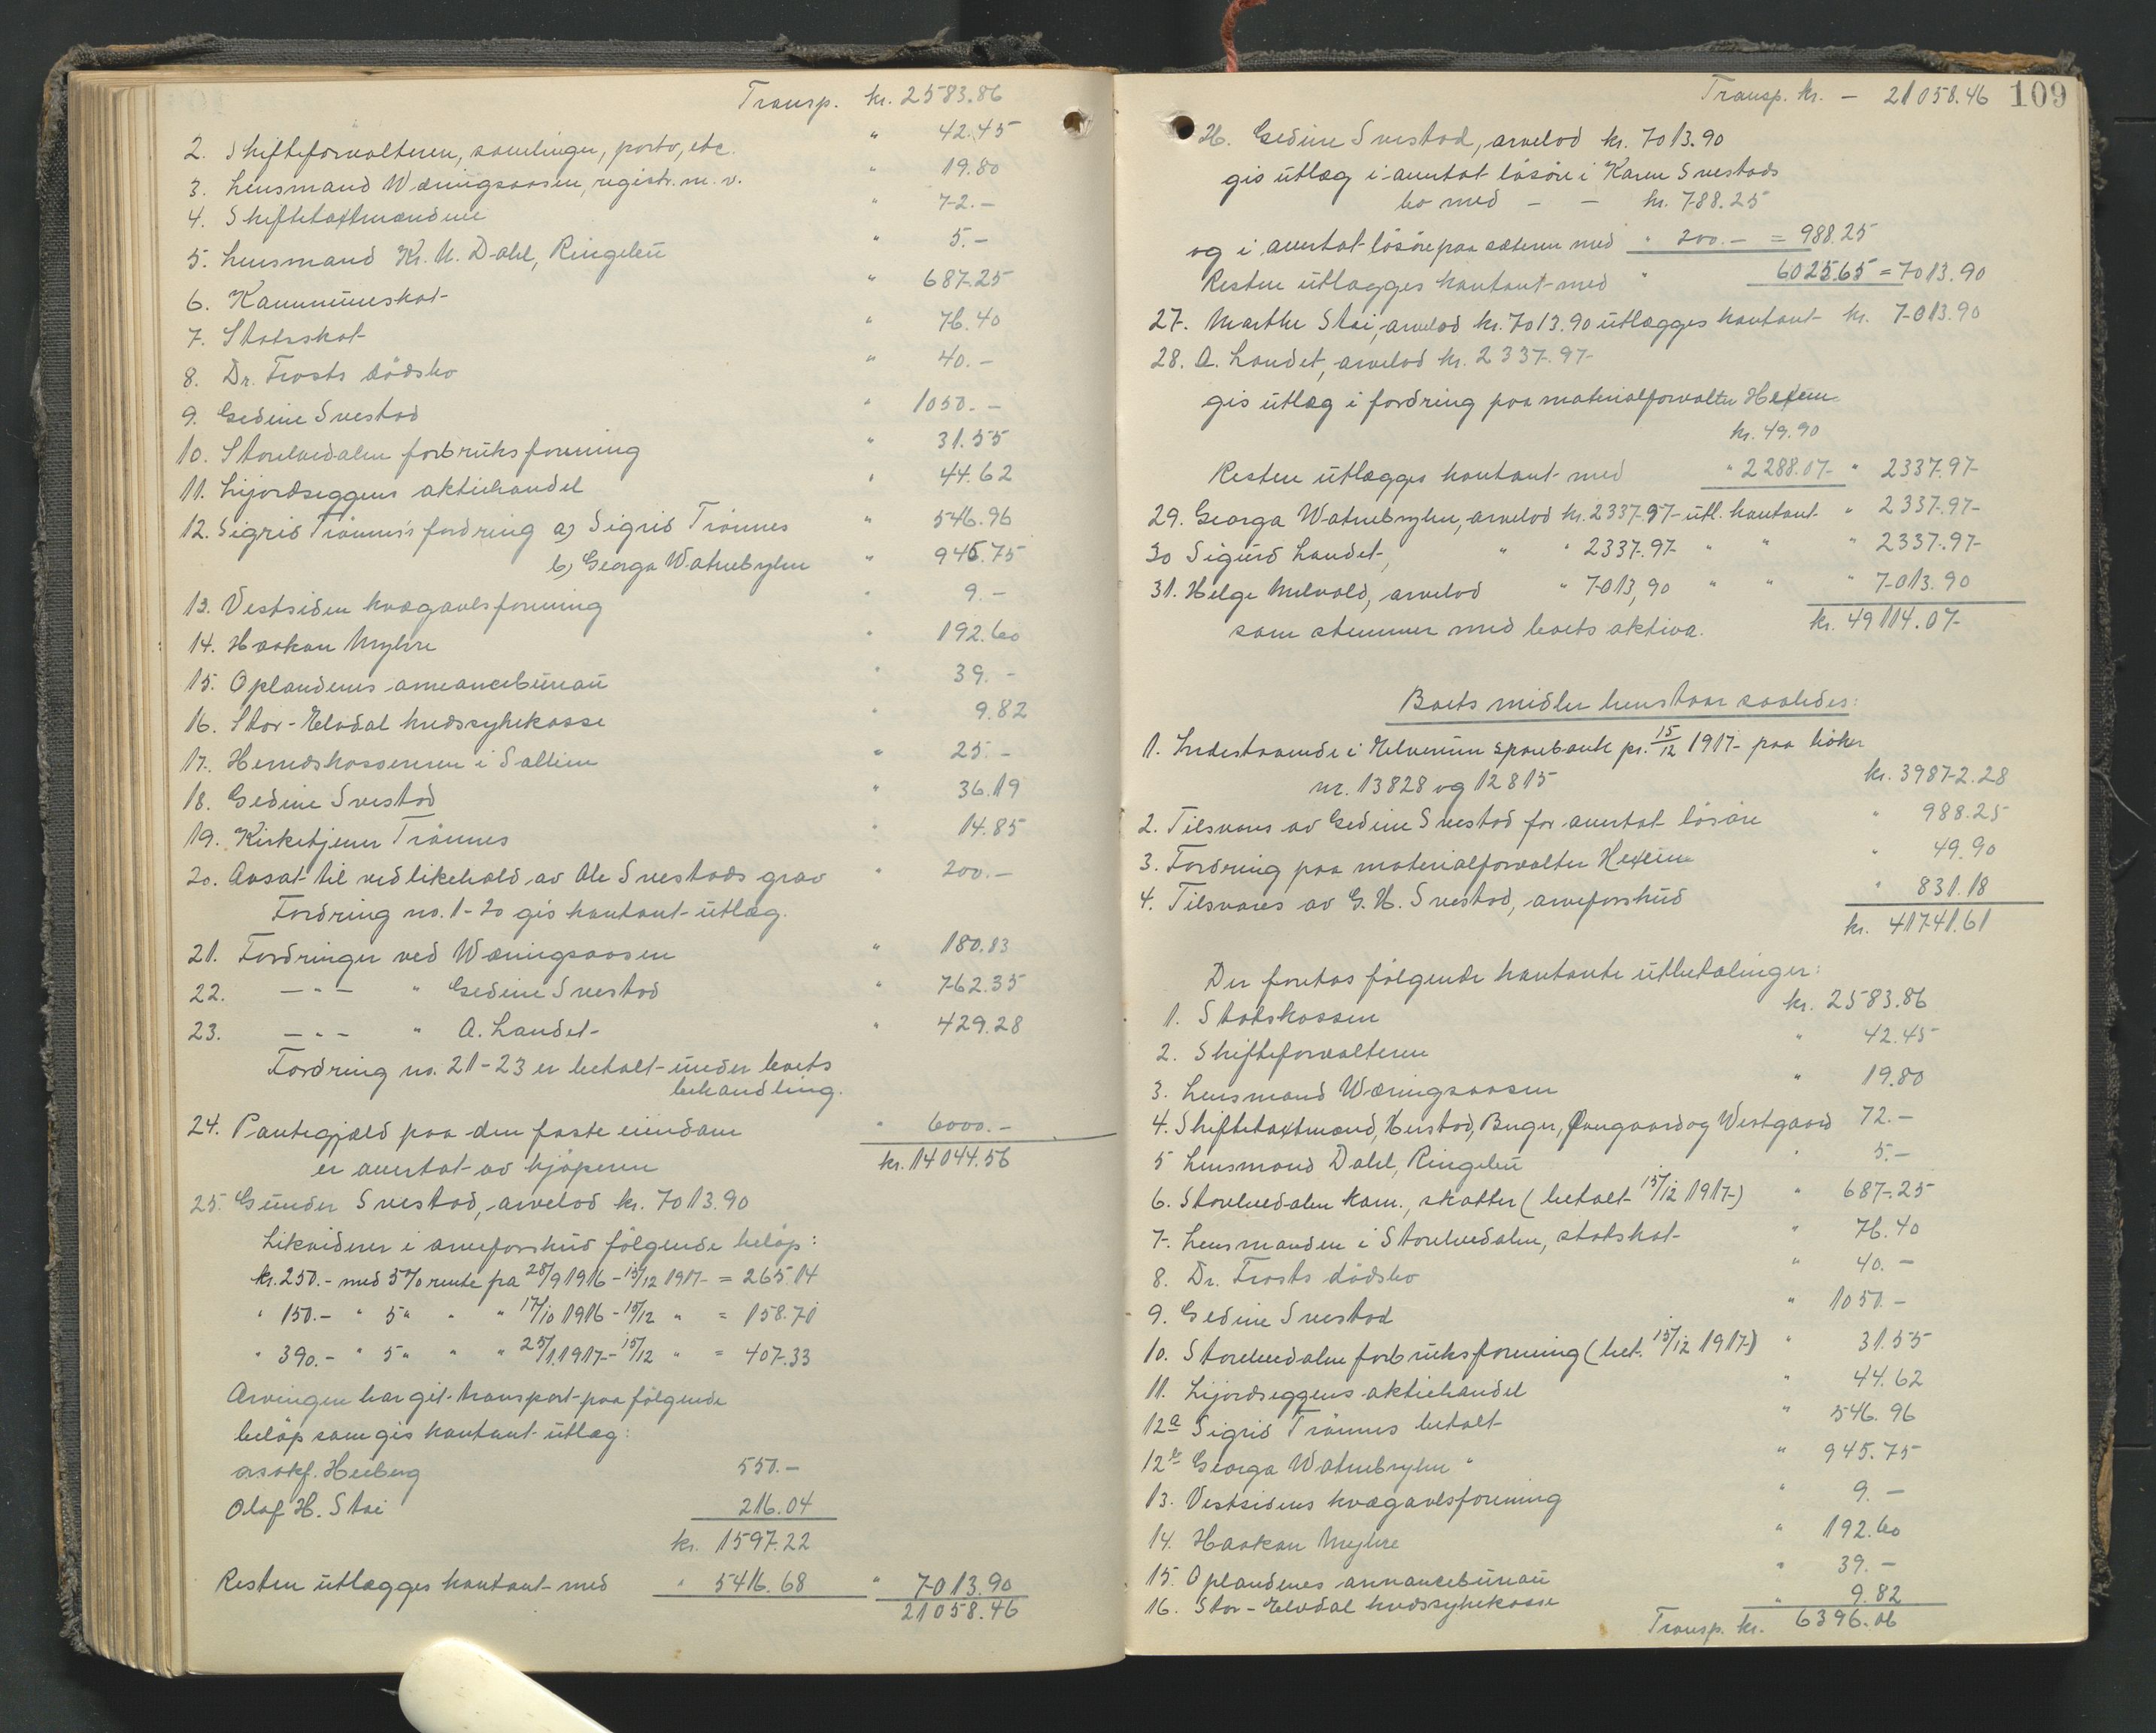 Transp. kr. 2583.86
2. Skifteforvalteren, samlinger, porto, etc. " 42.45
3. Lensmand Wæringsaasen, registr. m. v. " 19.80
4. Skiftetaxtmændene " 72.-
5. Lensmand Kr. U. Dahl, Ringebu " 5.-
6. Kommuneskat " 687.25
7. Statsskat " 76.40
8. Dr. Frosts dödsbo " 40.-
9. Gedine Svestad " 1050.-
10. Storelvedalen forbruksforening " 31.55
11. Lijordseggens aktiehandel " 44.62
12. Sigrid Trönnes's fordring a) Sigrid Trönnes " 546.96
b) Georga Watnebryhn " 945.75
13. Vestsiden kvægavlsforening " 9.-
14. Haakon Myhre " 192.60
15. Oplandenes annoncebureau " 39.-
16. Stor-Elvdal kredssykekasse " 9.82
17. Herredskassereren i Sollien " 25.-
18. Gedine Svestad " 36.19
19. Kirketjener Trönnes " 14.85
20. Avsat til vedlikehold av Ole Svestads grav " 200.-
Fordring no. 1-20 gis kontant utlæg.
21. Fordringer ved Wæringsaasen " 180.83
22. — " — " Gedine Svestad " 762.35
23. — " — " A. Landet " 429.28
Fordring no. 21-23 er betalt under boets
behandling.
24. Pantegjæld paa den faste eiendom " 6000.-
er avertat av kjöperen kr. 14044.56
25. Gunder Svestad, arvelod kr. 7013.90
Likviderer i arveforskud fölgende belöp:
kr. 250.- med 5% rente fra 28/9 1916 - 15/12 1917 = 265.14
" 150.- " 5 " " " 17/10 1916 - 15/12 " = 158.71
" 390.- " 5 " " " 25/1 1917 - 15/12 " = 407.33
Arvingen har git transport paa fölgende
belöp som gis kontant utlæg:
o.r.sakf. Heiberg 550.-
Olaf H. Stai 216.04
kr. 1597.22
Resten utlægges kontant med " 5416.68 " 7013.90
21058.46
Transp. kr. - 21058.46 109
26. Gedine Svestad, arvelod kr. 7013.90
gis utlæg i avertat lösöre i Karen Svestads
bo med - - kr. 788.25
og i avertat lösöre paa sæteren med " 200.- = 988.25
Resten utlægges kontant med " 6025.65 = 7013.90
27. Marthe Stai, arvelod kr. 7013.90 utlægges kontant kr. 7013.90
28. A. Landet, arvelod kr. 2337.97
gis utlæg i fordring paa materialforvalter Hexem
kr. 49.90
Resten utlægges kontant med " 2288.07 " 2337.97
29. Georga Watnebryhn, arvelod kr. 2337.97 utl. kontant " 2337.97
30 Sigurd Landet, " " 2337.97 " " " 2337.97
31. Helge Melvold, arvelod " 7013,90 " " " 7013.90
som stemmer med boets aktiva. kr. 49114.07
Boets midler henstaar saaledes:
1. Indestaaende i Elverum sparebank pr. 15/12 1917 paa böker
nr. 13828 og 12815 kr. 39872.28
2. Tilsvares av Gedine Svestad for avertat lösöre " 988.25
3. Fordring paa materialforvalter Hexem " 49.90
4. Tilsvares av G. H. Svestad, arveforskud " 831.18
kr. 41741.61
Der foretas fölgende kontante utbetalinger:
1. Statskassen kr. 2583.86
2. Skifteforvalteren " 42.45
3. Lensmand Wæringsaasen " 19.80
4. Skiftetaxtmænd, Herstad, Berger, Ougaard og Westgaard 72.-
5 Lensmand Dahl, Ringebu " 5.-
6. Storelvedalen kom., skatter (betalt 15/12 1917) " 687.25
7. Lensmanden i Storelvedalen, statskat " 76.40
8. Dr. Frosts dödsbo " 40.-
9. Gedine Svestad " 1050.-
10. Storelvedalen forbruksforening (bet. 15/12 1917) " 31.55
11. Lijordseggens aktiehandel " 44.62
12a Sigrid Trönnes betalt " 546.96
12b Georga Watnebryhn " " 945.75
13. Vestsidens kvægavlsforening " 9.-
14. Haakon Myhre " 192.60
15. Oplandenes annoncebureau " 39.-
16. Stor-Elvdal kredssykekasse " 9.82
Transp. kr. 6396.06